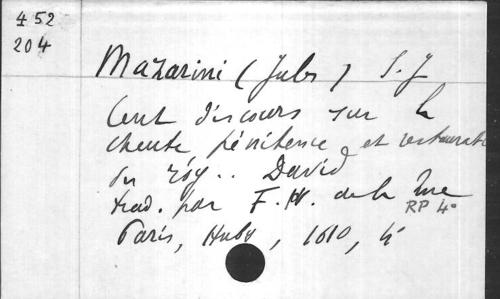 452
204
Mazarini (Jules) S.J
Cent discours sur la
cheute pénitence et restaurat
du roy.. David
trad. par F. H. de la Rue
RP 4°
Paris, Huby, 1610, 4°